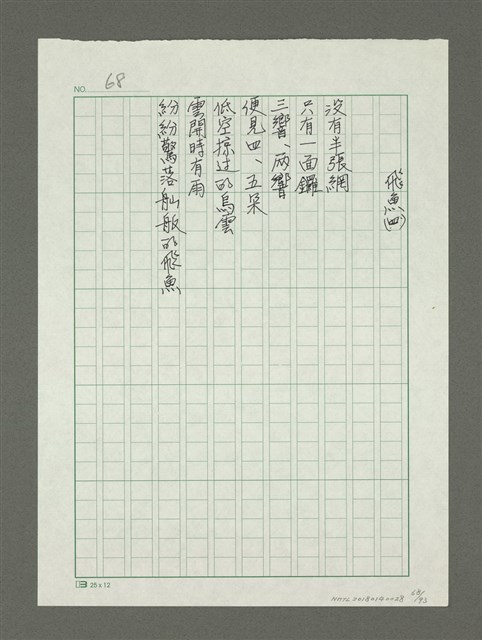 NO. 68
飛魚(四)
沒有半張網
只有一面鑼
三響、兩響
便見四、五朵
低空掠过的烏雲
雲開時有雨
紛紛驚落舢舨的飛魚
25 x 12
68/193